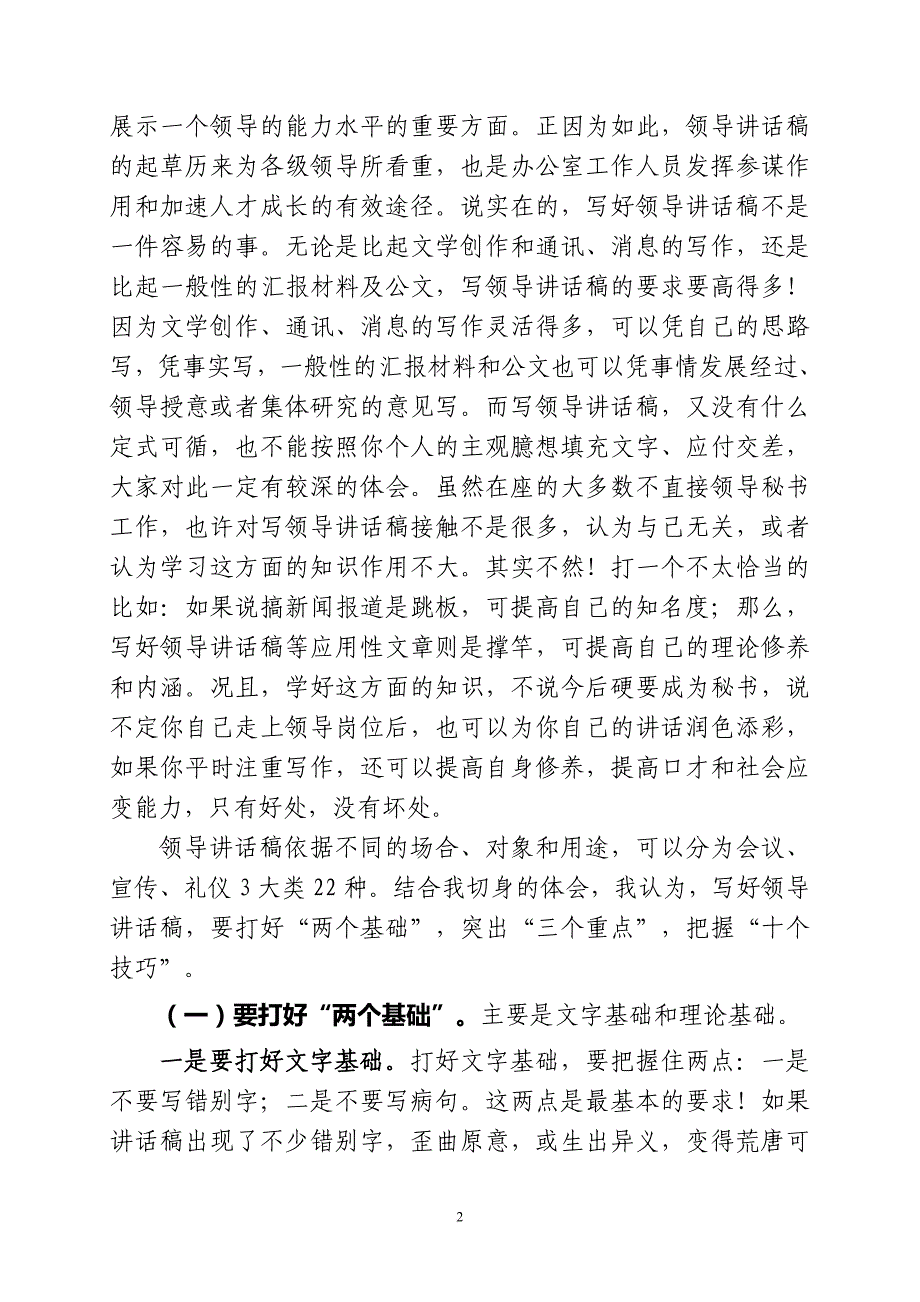 展示一个领导的能力水平的重要方面。正因为如此，领导讲话稿
的起草历来为各级领导所看重，也是办公室工作人员发挥参谋作
用和加速人才成长的有效途径。说实在的，写好领导讲话稿不是
一件容易的事。无论是比起文学创作和通讯、消息的写作，还是
比起一般性的汇报材料及公文，写领导讲话稿的要求要高得多！
因为文学创作、通讯、消息的写作灵活得多，可以凭自己的思路
写，凭事实写，一般性的汇报材料和公文也可以凭事情发展经过、
领导授意或者集体研究的意见写。而写领导讲话稿，又没有什么
定式可循，也不能按照你个人的主观臆想填充文字、应付交差，
大家对此一定有较深的体会。虽然在座的大多数不直接领导秘书
工作，也许对写领导讲话稿接触不是很多，认为与己无关，或者
认为学习这方面的知识作用不大。其实不然！打一个不太恰当的
比如：如果说搞新闻报道是跳板，可提高自己的知名度；那么，
写好领导讲话稿等应用性文章则是撑竿，可提高自己的理论修养
和内涵。况且，学好这方面的知识，不说今后硬要成为秘书，说
不定你自己走上领导岗位后，也可以为你自己的讲话润色添彩，
如果你平时注重写作，还可以提高自身修养，提高口才和社会应
变能力，只有好处，没有坏处。
领导讲话稿依据不同的场合、对象和用途，可以分为会议、
宣传、礼仪 3 大类 22 种。结合我切身的体会，我认为，写好领导
讲话稿，要打好“两个基础”，突出“三个重点”，把握“十个
技巧”。
（一）要打好“两个基础”。主要是文字基础和理论基础。
一是要打好文字基础。打好文字基础，要把握住两点：一是
不要写错别字；二是不要写病句。这两点是最基本的要求！如果
讲话稿出现了不少错别字，歪曲原意，或生出异义，变得荒唐可
2